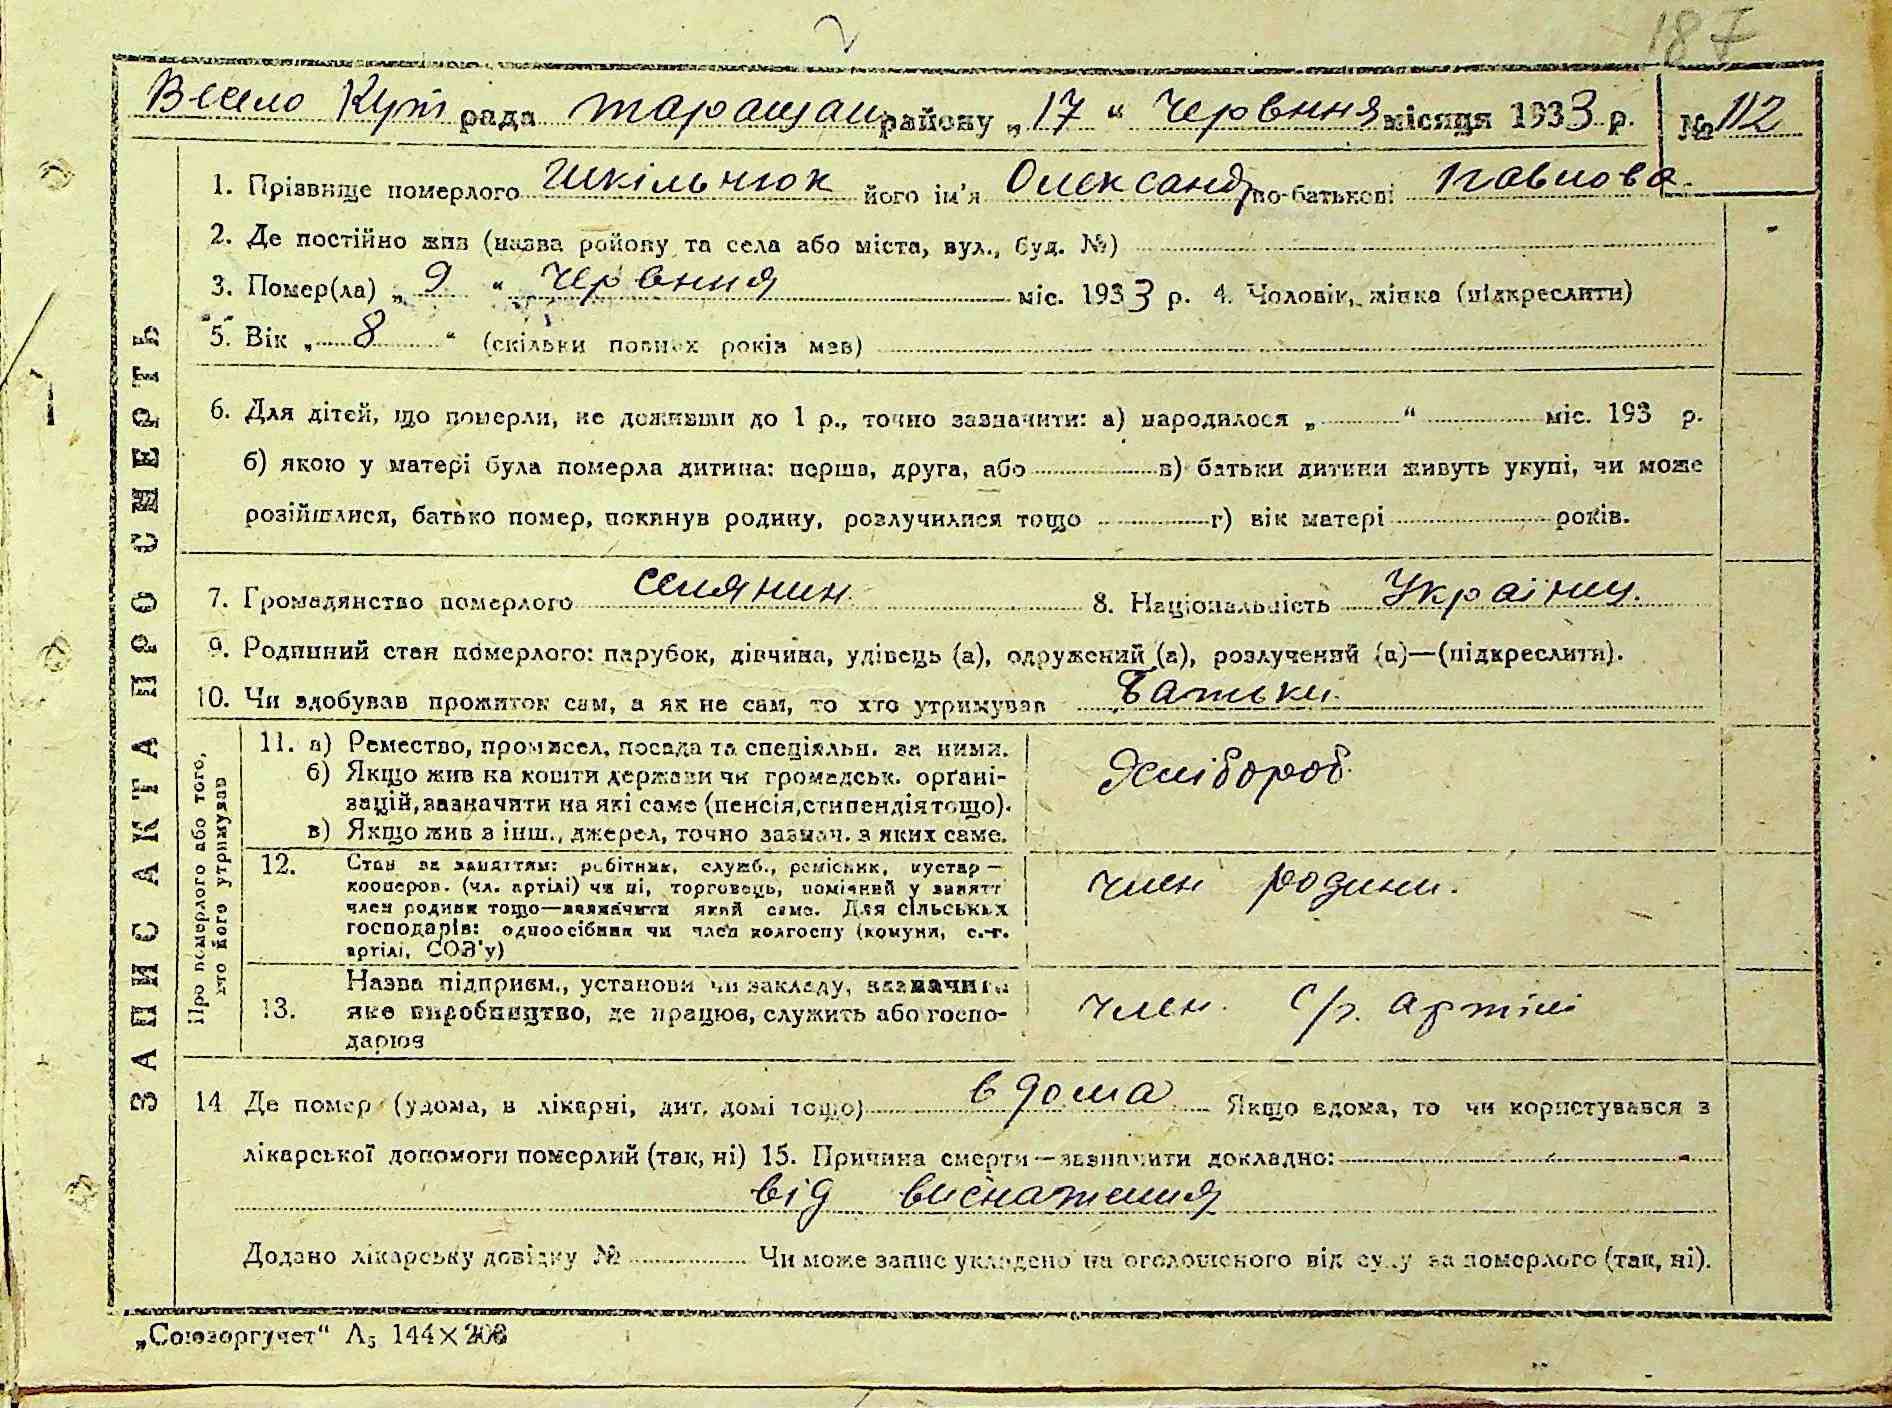 187
Весело Кут рада Таращан району „17“ Червння місяця 1933 р. № 112
1. Прізвище померлого Шкільнюк його ім'я Олександ по-батькові Павлова.
2. Де постійно жив (назва району та села або міста, вул., буд. №)
3. Помер(ла) „9“ Червння міс. 1933 р. 4. Чоловік, жінка (підкреслити)
5. Вік „8“ (скільки повних років мав)
6. Для дітей, що померли, не доживши до 1 р., точно зазначити: а) народилося „ “ міс. 193 р.
б) якою у матері була померла дитина: перша, друга, або в) батьки дитини живуть укупі, чи може
розійшлися, батько помер, покинув родину, розлучилися тощо г) вік матері років.
7. Громадянство померлого селянин 8. Національність Українц.
9. Родинний стан померлого: парубок, дівчина, удівець (а), одружений (а), розлучений (а)—(підкреслити).
10. Чи здобував прожиток сам, а як не сам, то хто утримував Батьки.
11. а) Ремество, промисел, посада та спеціяльн. за ними.
б) Якщо жив на кошти держави чи громадськ. органі-
зацій, зазначити на які саме (пенсія, стипендія тощо).
в) Якщо жив з інш., джерел, точно зазнач. з яких саме.
12. Стан за заняттям: робітник, служб., ремісник, кустар—
кооперов. (чл. артілі) чи ні, торговець, помічний у занятт
член родини тощо—зазначити який саме. Для сільських
господарів: одноосібник чи член колгоспу (комуни, с.-г.
артілі, СОЗ'у)
член родини.
13. Назва підприєм., установи чи закладу, зазначити
яке виробництво, де працює, служить або госпо-
дарює
член. с/г. артілі
14 Де помер (удома, в лікарні, дит. домі тощо) вдома Якщо вдома, то чи користувався з
лікарської допомоги померлий (так, ні) 15. Причина смерти—зазначити докладно:
від виснаження
Додано лікарську довідку № Чи може запис укладено на оголошеного від суду за померлого (так, ні).
„Союзоргучет“ А₅ 144×208
ЗАПИС АКТА ПРО СМЕРТЬ
Про померлого або того,
хто його утримував